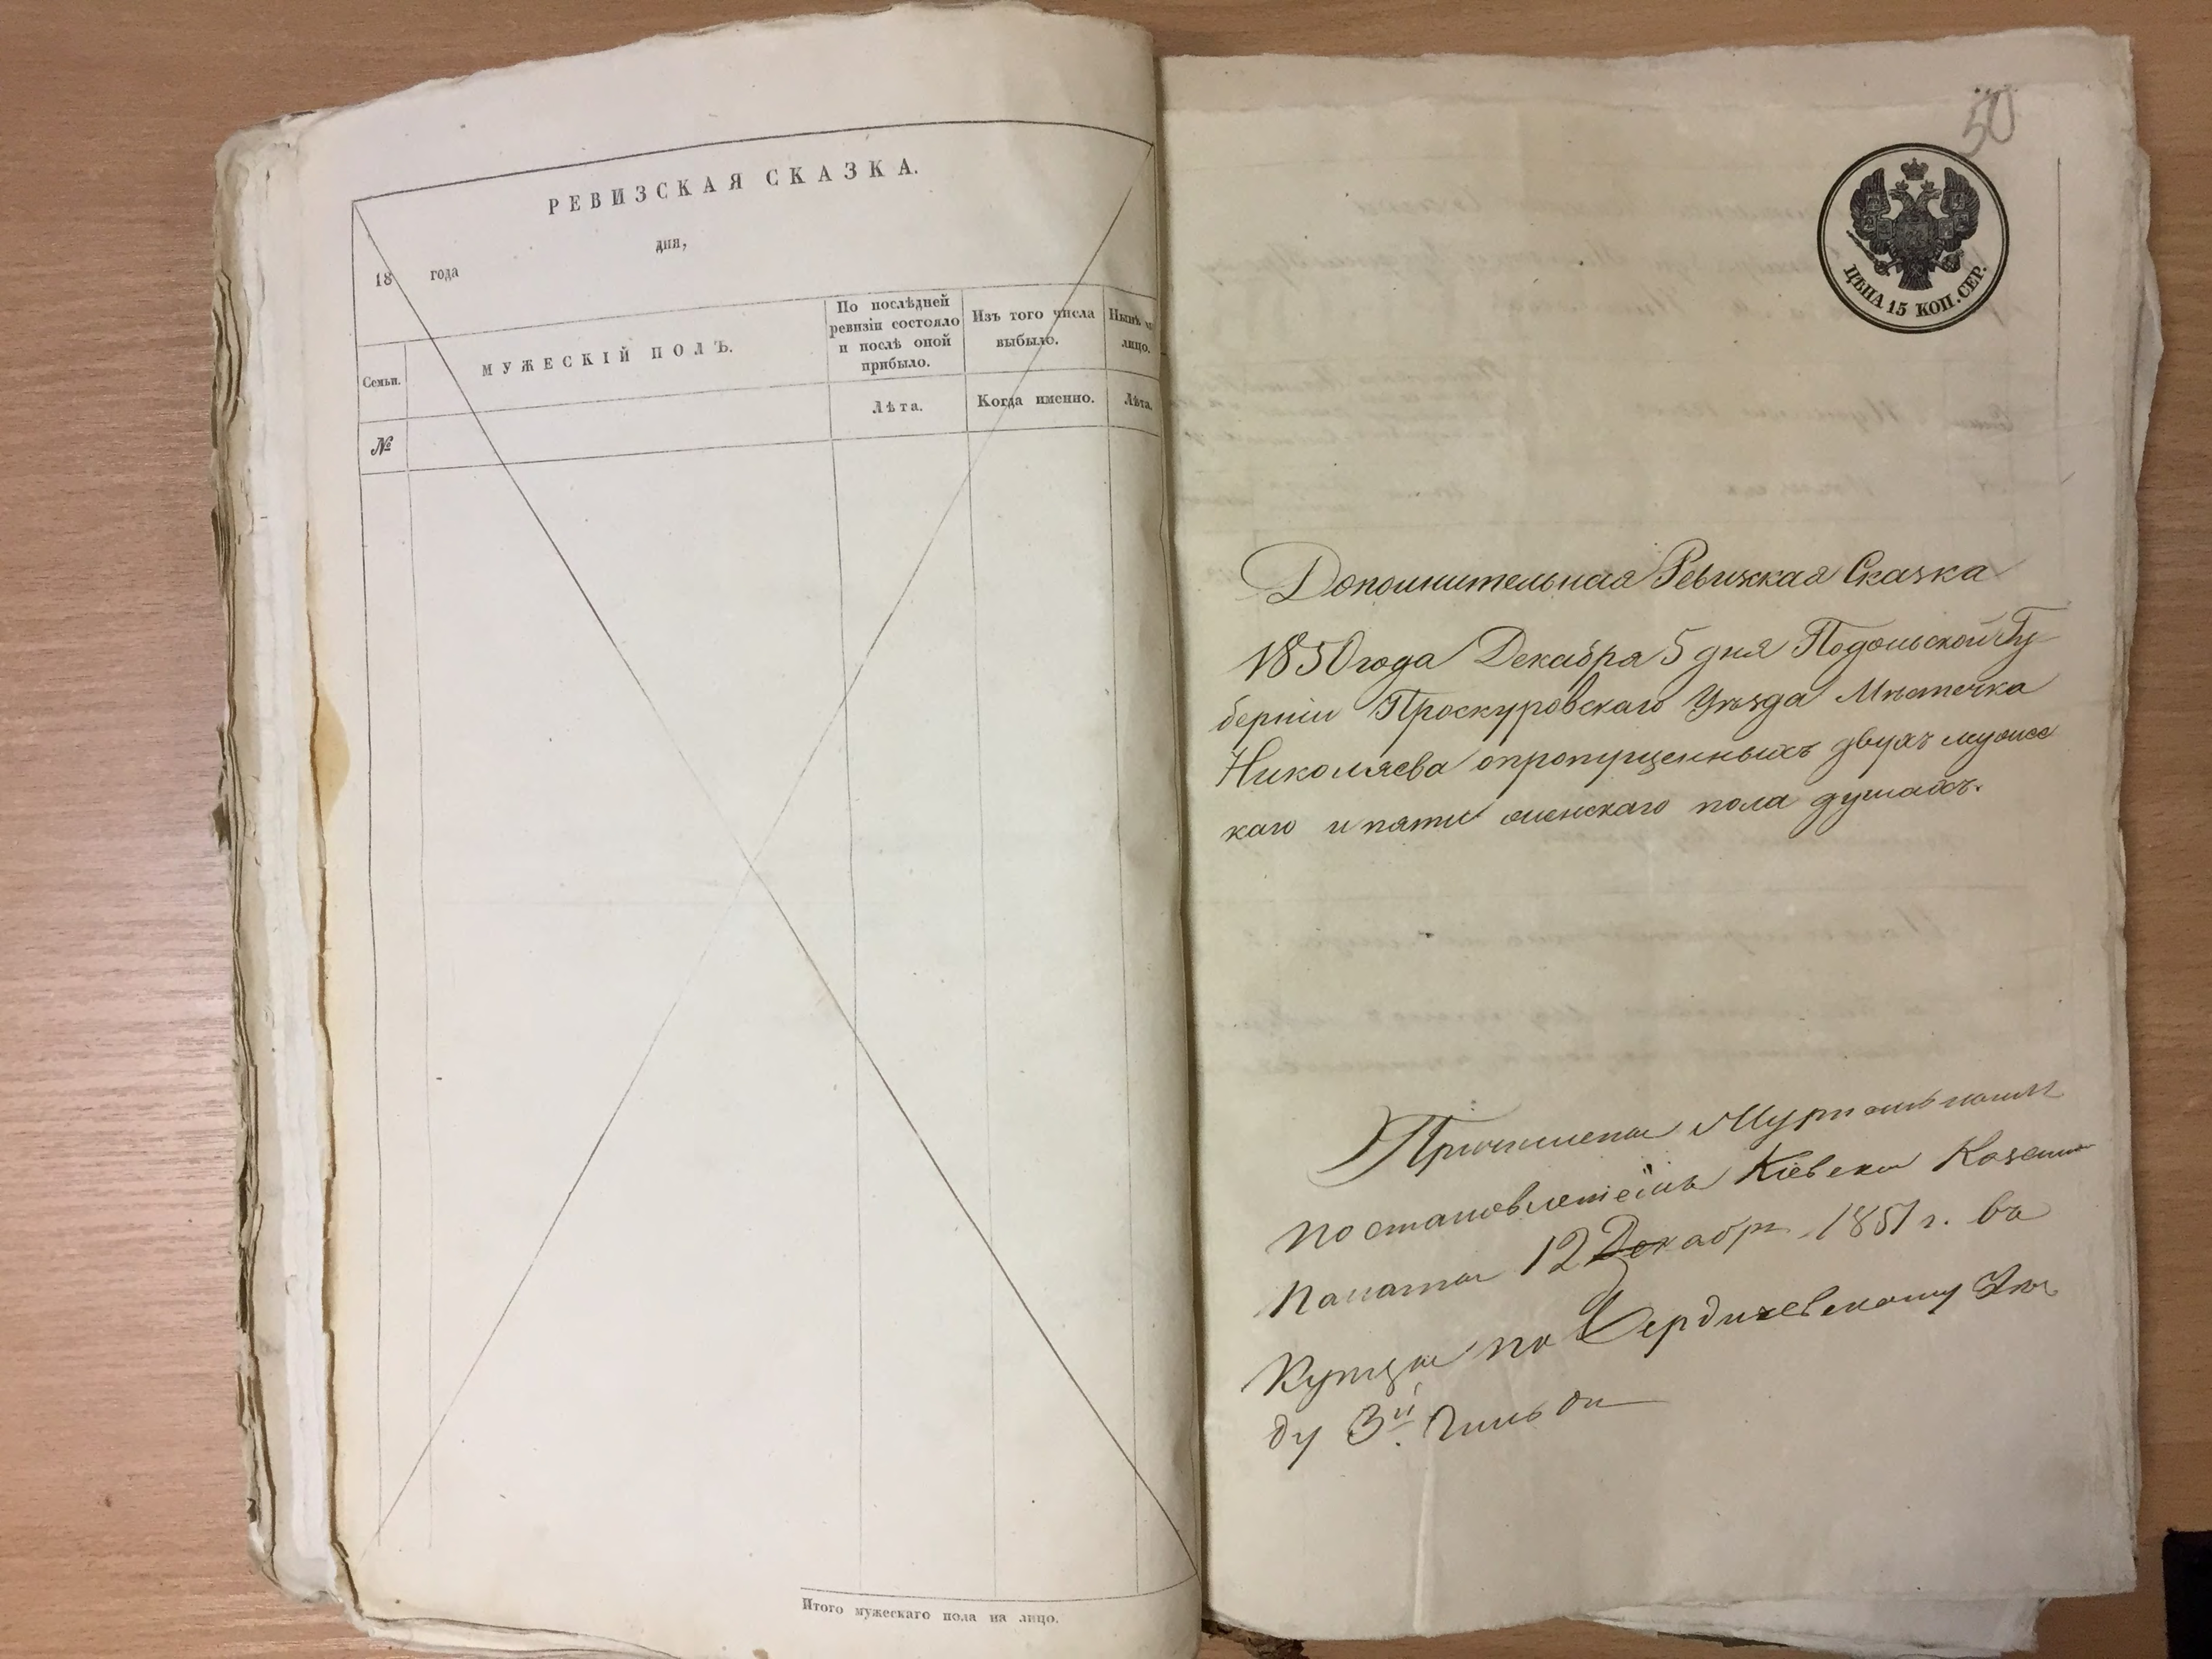 РЕВИЗСКАЯ СКАЗКА.
18 года дня,
Семьи.
МУЖЕСКІЙ ПОЛЪ.
По послѣдней
ревизіи состояло
и послѣ оной
прибыло.
Изъ того числа
выбыло.
Нынѣ
лицо.
Лѣта.
Когда именно.
Лѣта.
№
Итого мужескаго пола на лицо.
50
ЦѢНА 15 КОП. СЕР.
Дополнительная Ревижкая Сказка
1850 года Декабра 5 дня Подольской Гу-
берніи Проскуровскаго Уѣзда Мѣстечка
Николаева опропущенныхъ двухъ мужес
каго и пяти женскаго пола душахъ.
Причислены
постановленіемъ Кіевской Казенной
Палаты 12 Декабр 1851 г. въ
Купцы по Бердичевскому Уѣз
ду 3й Гильди